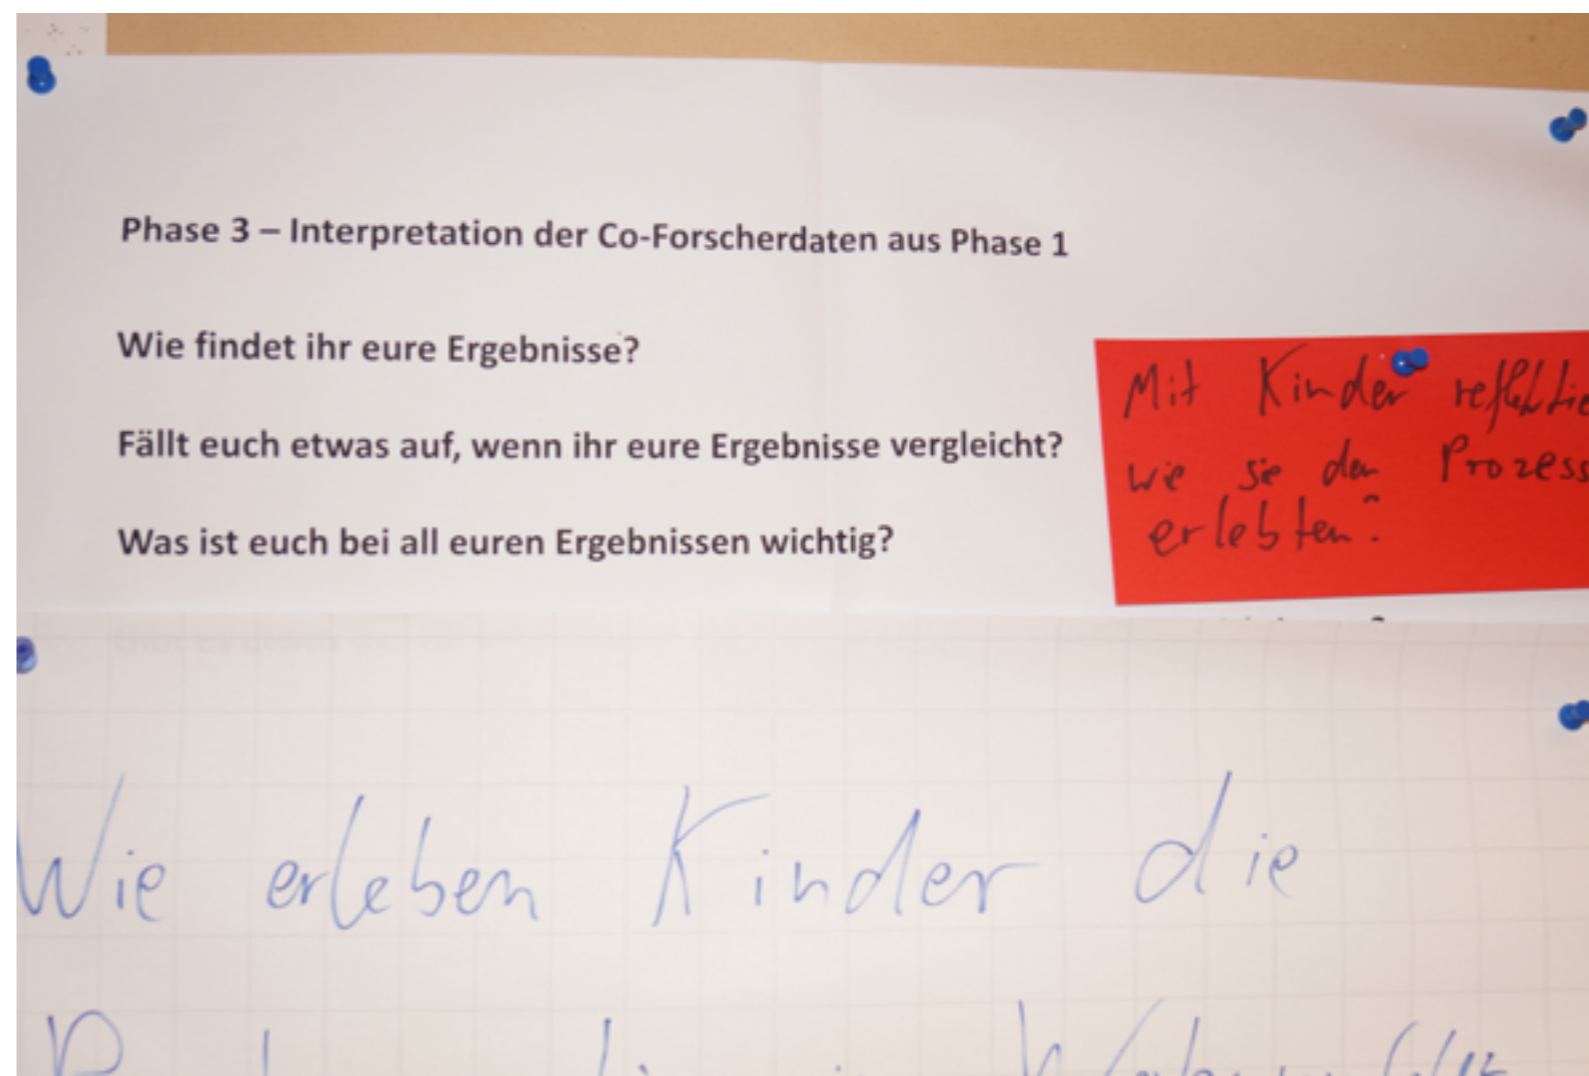 Phase 3 – Interpretation der Co-Forscherdaten aus Phase 1
Wie findet ihr eure Ergebnisse?
Fällt euch etwas auf, wenn ihr eure Ergebnisse vergleicht?
Was ist euch bei all euren Ergebnissen wichtig?
Mit Kinder reflektie
wie sie den Prozess
erlebten?
Wie erleben Kinder die